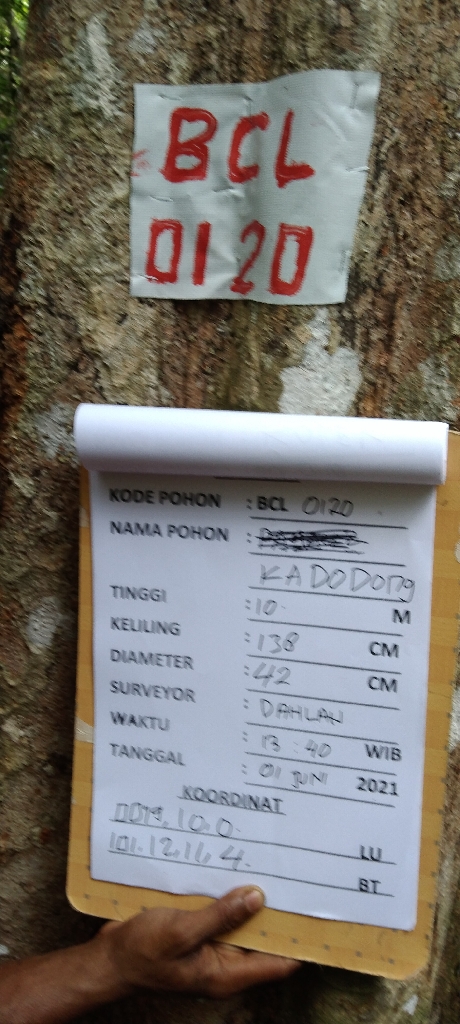 BCL
0120
KODE POHON : BCL 0120
NAMA POHON :
KADODONg
TINGGI : 10 M
KELILING : 138 CM
DIAMETER : 42 CM
SURVEYOR : DAHLAN
WAKTU : 13:40 WIB
TANGGAL : 01 JUNI 2021
KOORDINAT
10.0 LU
101.12.11,4 BT